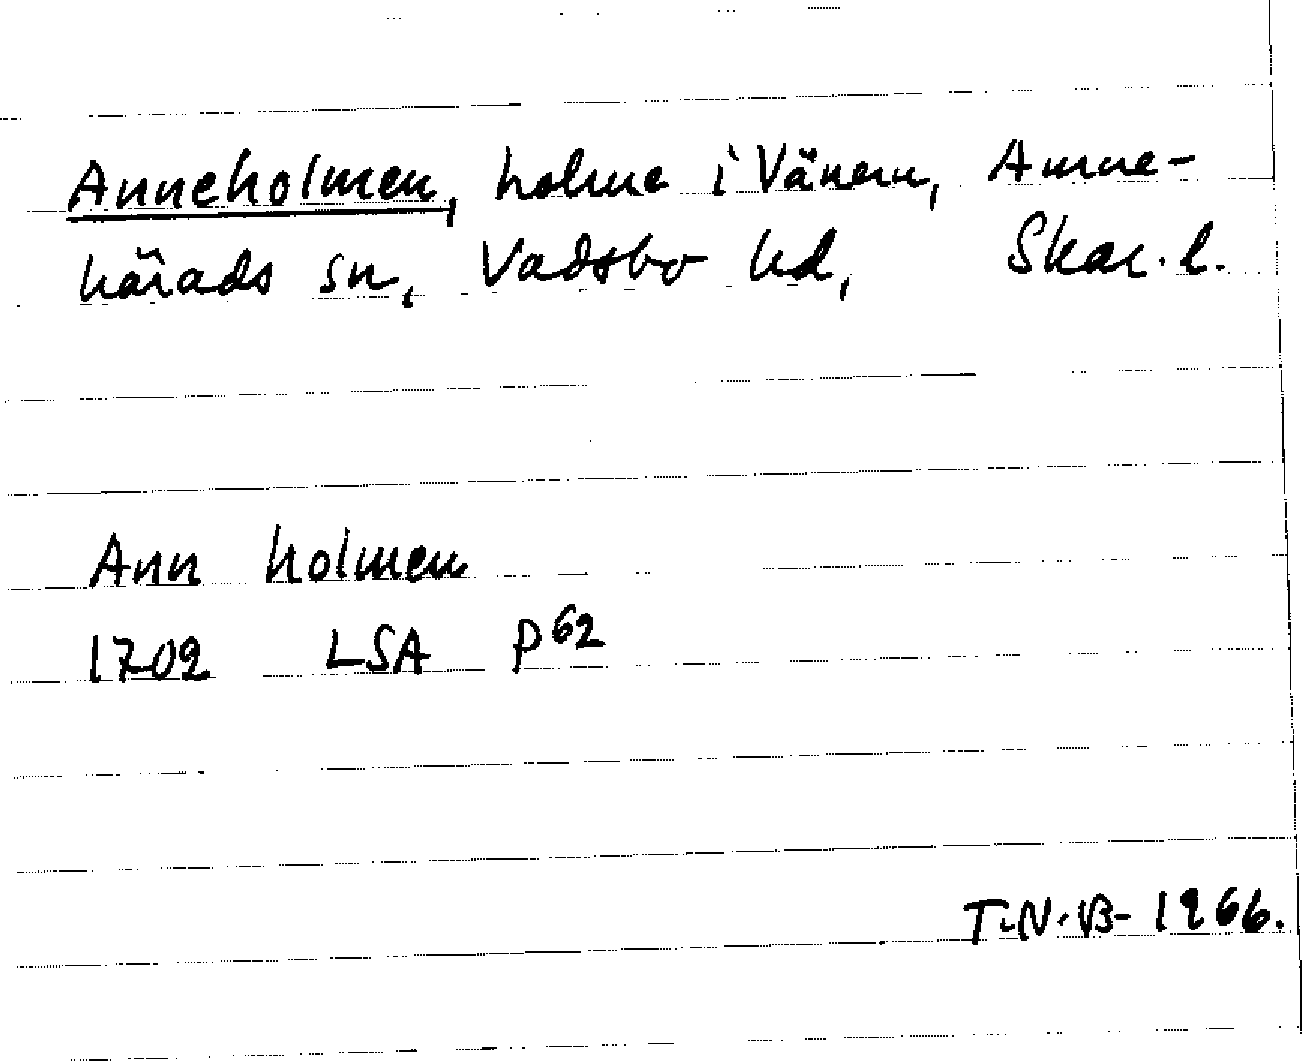 Anneholmen, holme i Vänern, Amne-
härads sn, Vadsbo hd, Skar. l.
Ann holmen
1702 LSA P62
T.N.B- 1966.